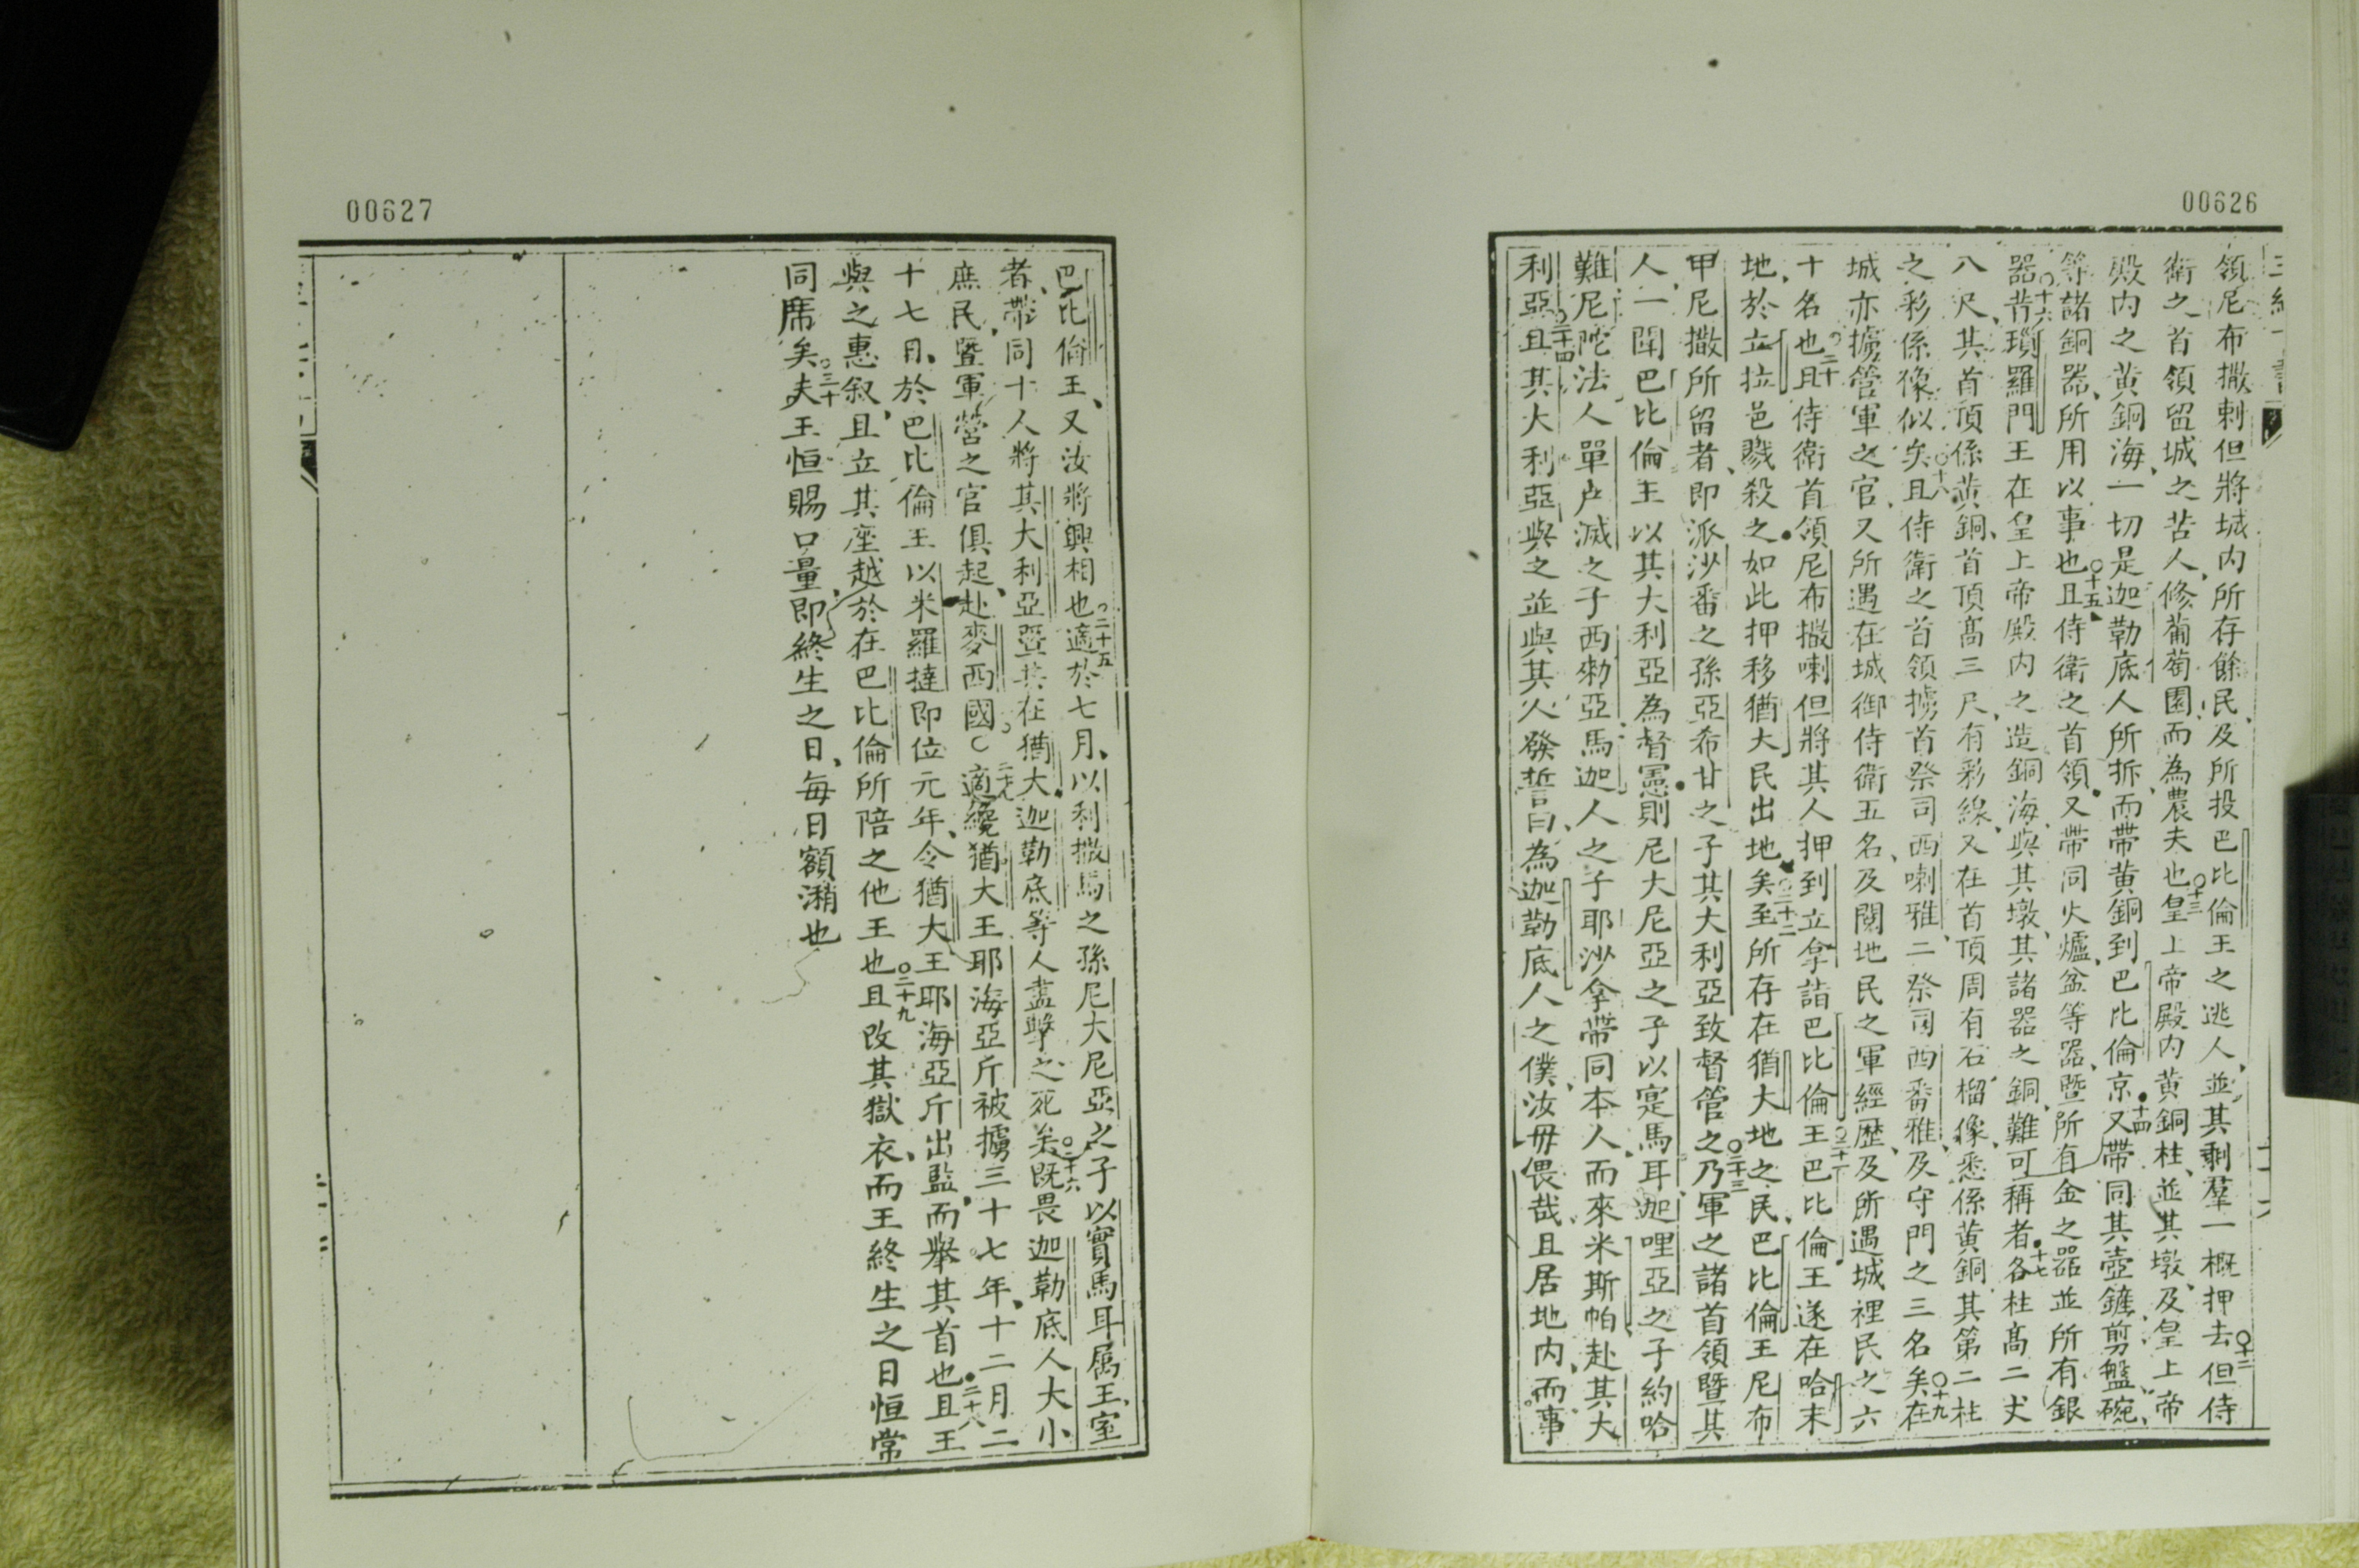 00626
領尼布撒剌但將城内所存餘民及所投巴比倫王之逃人並其剩羣一概押去○十二但侍
衛之首領留城之苦人修葡萄園而為農夫也○十三皇上帝殿内黄銅柱並其墩及皇上帝
殿内之黄銅海一切是迦勒底人所拆而帶黄銅到巴比倫京●十四又帶同其壺鏟剪盤碗
等諸銅器所用以事也○十五且侍衛之首領又帶同火爐盆等器暨所有金之器並所有銀
器○十六昔瑣羅門王在皇上帝殿内之造銅海與其墩其諸器之銅難可稱者●十七各柱高二丈
八尺其首頂係黄銅首頂高三尺有彩線又在首頂周有石榴像悉係黄銅其第二柱
之彩係像似矣○十八且侍衛之首領擄首祭司西喇雅二祭司西番雅及守門之三名矣○十九在
城亦擄管軍之官又所遇在城御侍衛五名及閱地民之軍經歴及所遇城裡民之六
十名也○二十且侍衛首領尼布撒喇但將其人押到立拿詣巴比倫王○二十一巴比倫王遂在哈末
地於立拉邑戮殺之如此押移猶大民出地矣○二十二至所存在猶大地之民巴比倫王尼布
甲尼撒所留者即派沙番之孫亞希甘之子其大利亞致督管之○二十三乃軍之諸首領暨其
人一聞巴比倫王以其大利亞為督憲則尼大尼亞之子以寔馬耳迦哩亞之子約哈
難尼陀法人單户滅之子西勑亞馬迦人之子耶沙拿帶同本人而來米斯帕赴其大
利亞○二十四且其大利亞與之並與其人發誓曰為迦勒底人之僕汝毋偎哉且居地内而事
00627
巴比倫王又汝將興相也○二十五適於七月以利撒馬之孫尼大尼亞之子以實馬耳属王室
者帶同十人將其大利亞暨其在猶大迦勒底等人盡擊之死矣○二十六既畏迦勒底人大小
庶民暨軍營之官俱起赴麥西國○二十七適纔猶大王耶海亞斤被擄三十七年十二月二
十七日於巴比倫王以米羅撻即位元年令猶大王耶海亞斤出監而舉其首也●二十八且王
與之惠叙且立其座越於在巴比倫所陪之他王也○二十九且改其獄衣而王終生之日恒常
同席矣○三十夫王恒賜口量即終生之日每日額瀳也